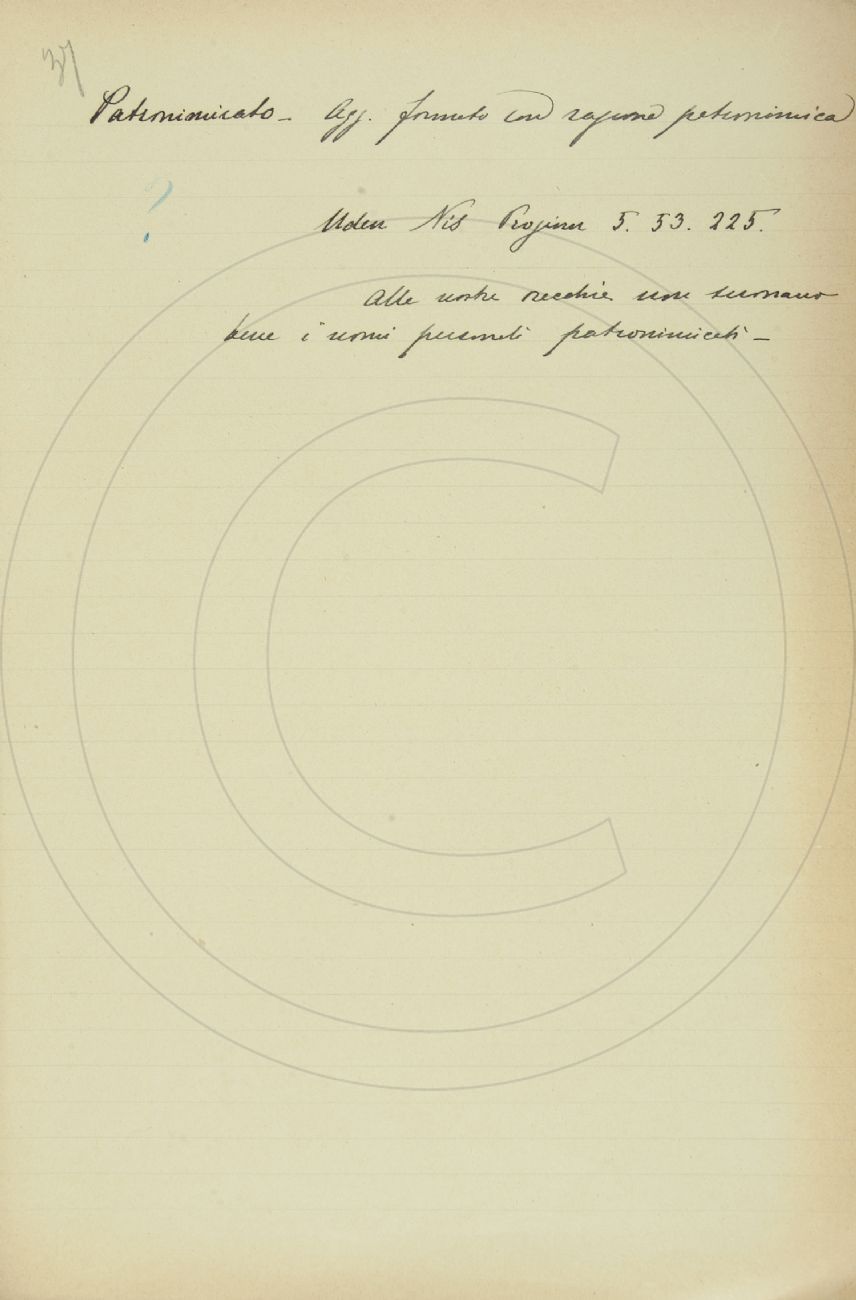 Patronimicato - Agg. formato con ragione patronimica
?
Uden Nis Proginn 5. 53. 225.
Alle nostre orecchie non suonano
bene i nomi personali patronimicati -